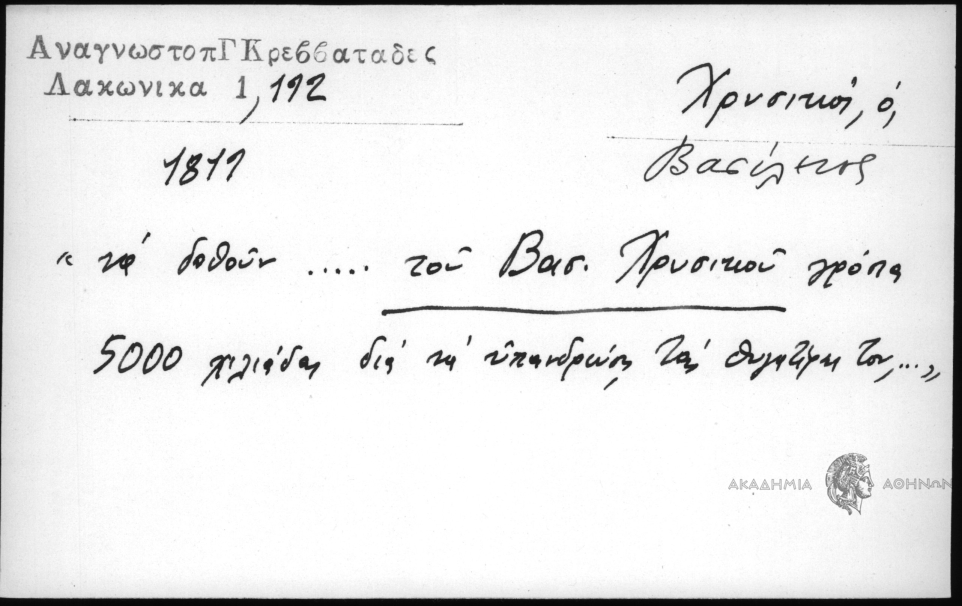 ΑναγνωστοπΓΚρεββαταδες
Λακωνικα 1,192
Χρυσικός, ὁ,
Βασίλειος
1819
« νά δοθοῦν ..... τοῦ Βασ. Χρυσικοῦ γρόσια
5000 χιλιάδας διά νά ὑπανδρεύσῃ τάς θυγατέρας του,...»
ΑΚΑΔΗΜΙΑ ΑΘΗΝΩΝ